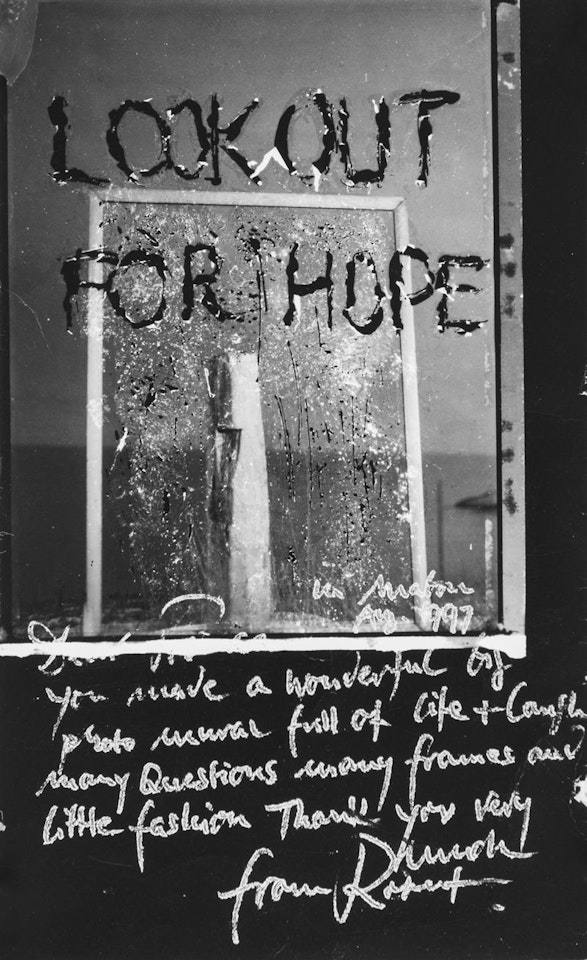 LOOKOUT
FOR HOPE
Aug. 1997
Dear
you made a wonderful big
photo mural full of life + laugh
many Questions many frames and
little fashion Thank you very
much
from Robert